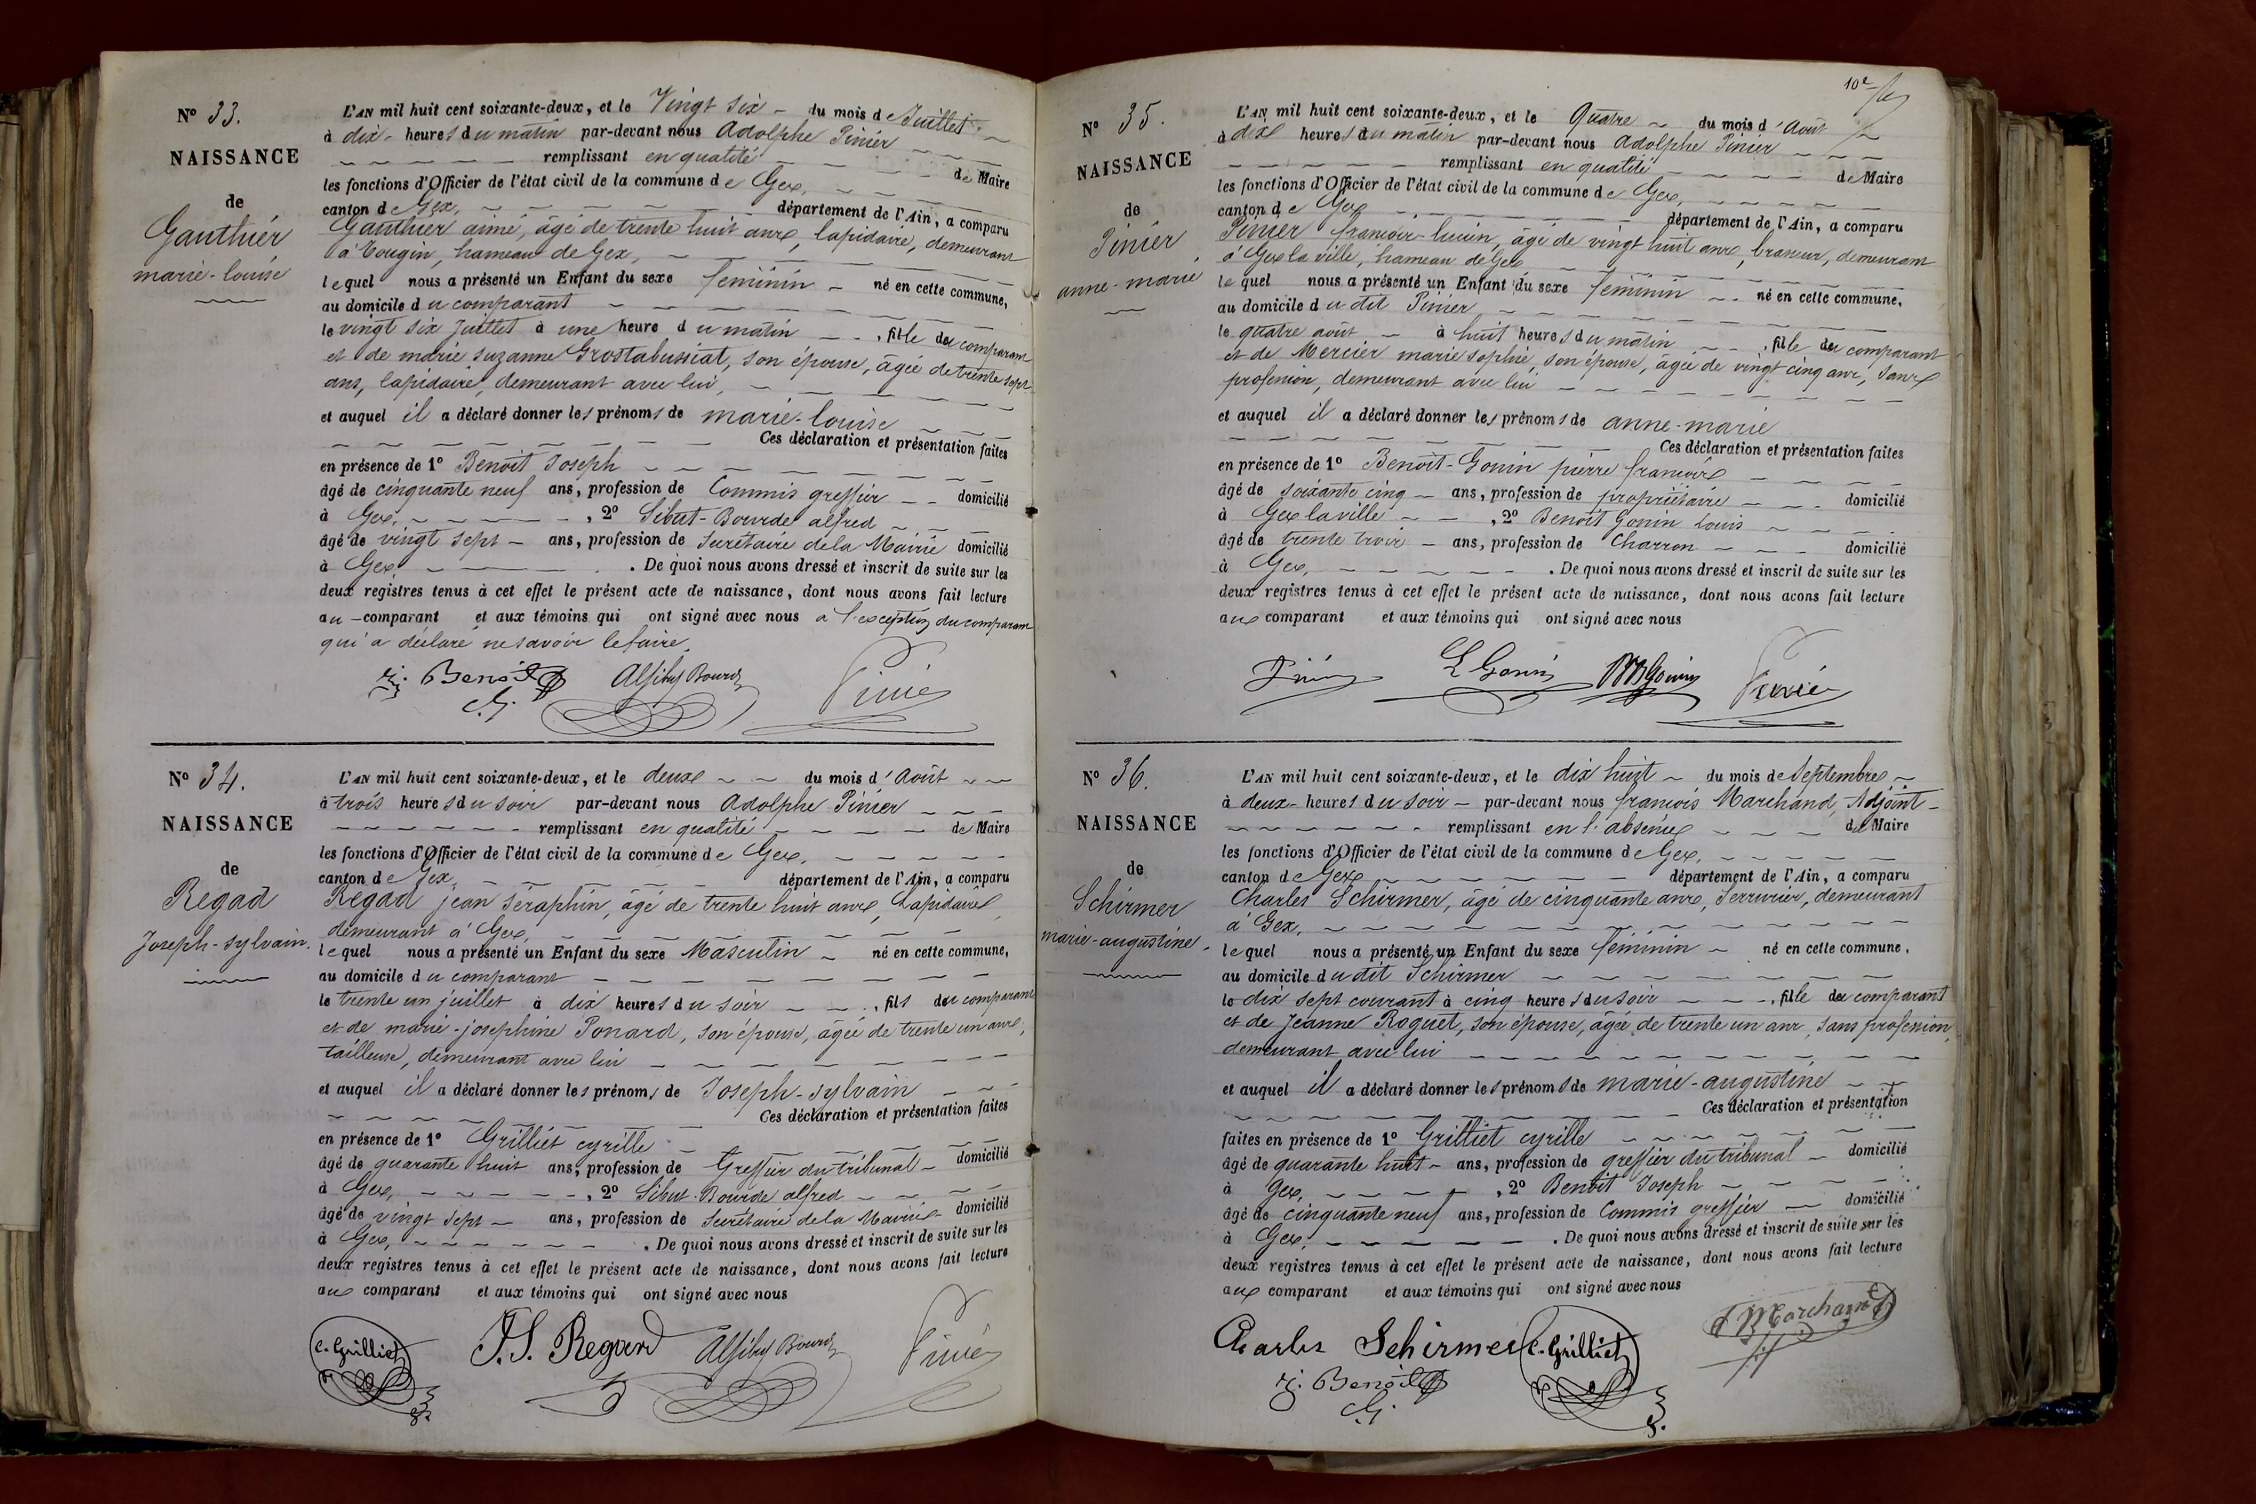 N° 33.
NAISSANCE
de
Gauthier
marie-louise
L'AN mil huit cent soixante-deux, et le Vingt six du mois de Juillet
à dix heures du matin par-devant nous Adolphe Pinier
remplissant en qualité de Maire
les fonctions d'Officier de l'état civil de la commune de Gex,
canton de Gex, département de l'Ain, a comparu
Gauthier aimé, âgé de trente huit ans, lapidaire, demeurant
à Tougin, hameau de Gex,
lequel nous a présenté un Enfant du sexe féminin né en cette commune,
au domicile du comparant
le vingt six Juillet à une heure du matin, fille du comparant
et de marie suzanne Grostabussiat, son épouse, âgée de trente sept
ans, lapidaire, demeurant avec lui,
et auquel il a déclaré donner les prénoms de marie-louise
Ces déclaration et présentation faites
en présence de 1° Benoit Joseph
âgé de cinquante neuf ans, profession de Commis greffier domicilié
à Gex, 2° Sibut-Bourde alfred
âgé de vingt sept ans, profession de Secrétaire de la Mairie domicilié
à Gex. De quoi nous avons dressé et inscrit de suite sur les
deux registres tenus à cet effet le présent acte de naissance, dont nous avons fait lecture
au comparant et aux témoins qui ont signé avec nous a l'exception du comparant
qui a déclaré ne savoir le faire.
Benoit
A Sibut Bourde
Pinier
N° 34.
NAISSANCE
de
Regad
Joseph-sylvain.
L'AN mil huit cent soixante-deux, et le deux du mois d'Août
à trois heures du soir par-devant nous Adolphe Pinier
remplissant en qualité de Maire
les fonctions d'Officier de l'état civil de la commune de Gex,
canton de Gex, département de l'Ain, a comparu
Regad jean séraphin, âgé de trente huit ans, Lapidaire,
demeurant à Gex,
lequel nous a présenté un Enfant du sexe Masculin né en cette commune,
au domicile du comparant
le trente un juillet à dix heures du soir, fils du comparant
et de marie-josephine Ponard, son épouse, âgée de trente un ans,
tailleuse, demeurant avec lui
et auquel il a déclaré donner les prénoms de Joseph-sylvain
Ces déclaration et présentation faites
en présence de 1° Grilliet cyrille
âgé de quarante huit ans, profession de Greffier du tribunal domicilié
à Gex, 2° Sibut-Bourde alfred
âgé de vingt sept ans, profession de Secrétaire de la Mairie domicilié
à Gex, . De quoi nous avons dressé et inscrit de suite sur les
deux registres tenus à cet effet le présent acte de naissance, dont nous avons fait lecture
aux comparant et aux témoins qui ont signé avec nous
C. Grilliet
J. S. Regard
A Sibut Bourde
Pinier
N° 35.
NAISSANCE
de
Pinier
anne-marie
L'AN mil huit cent soixante-deux, et le Quatre du mois d'Août
à dix heures du matin par-devant nous Adolphe Pinier
remplissant en qualité de Maire
les fonctions d'Officier de l'état civil de la commune de Gex,
canton de Gex département de l'Ain, a comparu
Pinier francois-lucien, âgé de vingt huit ans, brasseur, demeurant
à Gex la ville, hameau de Gex
lequel nous a présenté un Enfant du sexe féminin né en cette commune,
au domicile dudit Pinier
le quatre août à huit heures du matin, fille du comparant
et de Mercier marie sophie, son épouse, âgée de vingt cinq ans, sans
profession, demeurant avec lui
et auquel il a déclaré donner les prénoms de anne-marie
Ces déclaration et présentation faites
en présence de 1° Benoit-Gonin pierre francois
âgé de soixante cinq ans, profession de propriétaire domicilié
à Gex la ville, 2° Benoit Gonin louis
âgé de trente trois ans, profession de Charron domicilié
à Gex, . De quoi nous avons dressé et inscrit de suite sur les
deux registres tenus à cet effet le présent acte de naissance, dont nous avons fait lecture
aux comparant et aux témoins qui ont signé avec nous
L Gonin
Gonin
Pinier
N° 36.
NAISSANCE
de
Schirmer
marie-augustine
L'AN mil huit cent soixante-deux, et le dix huit du mois de Septembre
à deux heures du soir par-devant nous francois Marchand, Adjoint
remplissant en l'absence du Maire
les fonctions d'Officier de l'état civil de la commune de Gex,
canton de Gex département de l'Ain, a comparu
Charles Schirmer, âgé de cinquante ans, Serrurier, demeurant
à Gex,
lequel nous a présenté un Enfant du sexe féminin né en cette commune,
au domicile dudit Schirmer
le dix sept courant à cinq heures du soir, fille du comparant
et de Jeanne Roguet, son épouse, âgée de trente un ans, sans profession,
demeurant avec lui
et auquel il a déclaré donner les prénoms de marie-augustine
Ces déclaration et présentation
faites en présence de 1° Grilliet cyrille
âgé de quarante huit ans, profession de greffier du tribunal domicilié
à Gex, 2° Benoit Joseph
âgé de cinquante neuf ans, profession de Commis greffier domicilié
à Gex, . De quoi nous avons dressé et inscrit de suite sur les
deux registres tenus à cet effet le présent acte de naissance, dont nous avons fait lecture
aux comparant et aux témoins qui ont signé avec nous
Charles Schirmer
C. Grilliet
F Marchand
Benoit